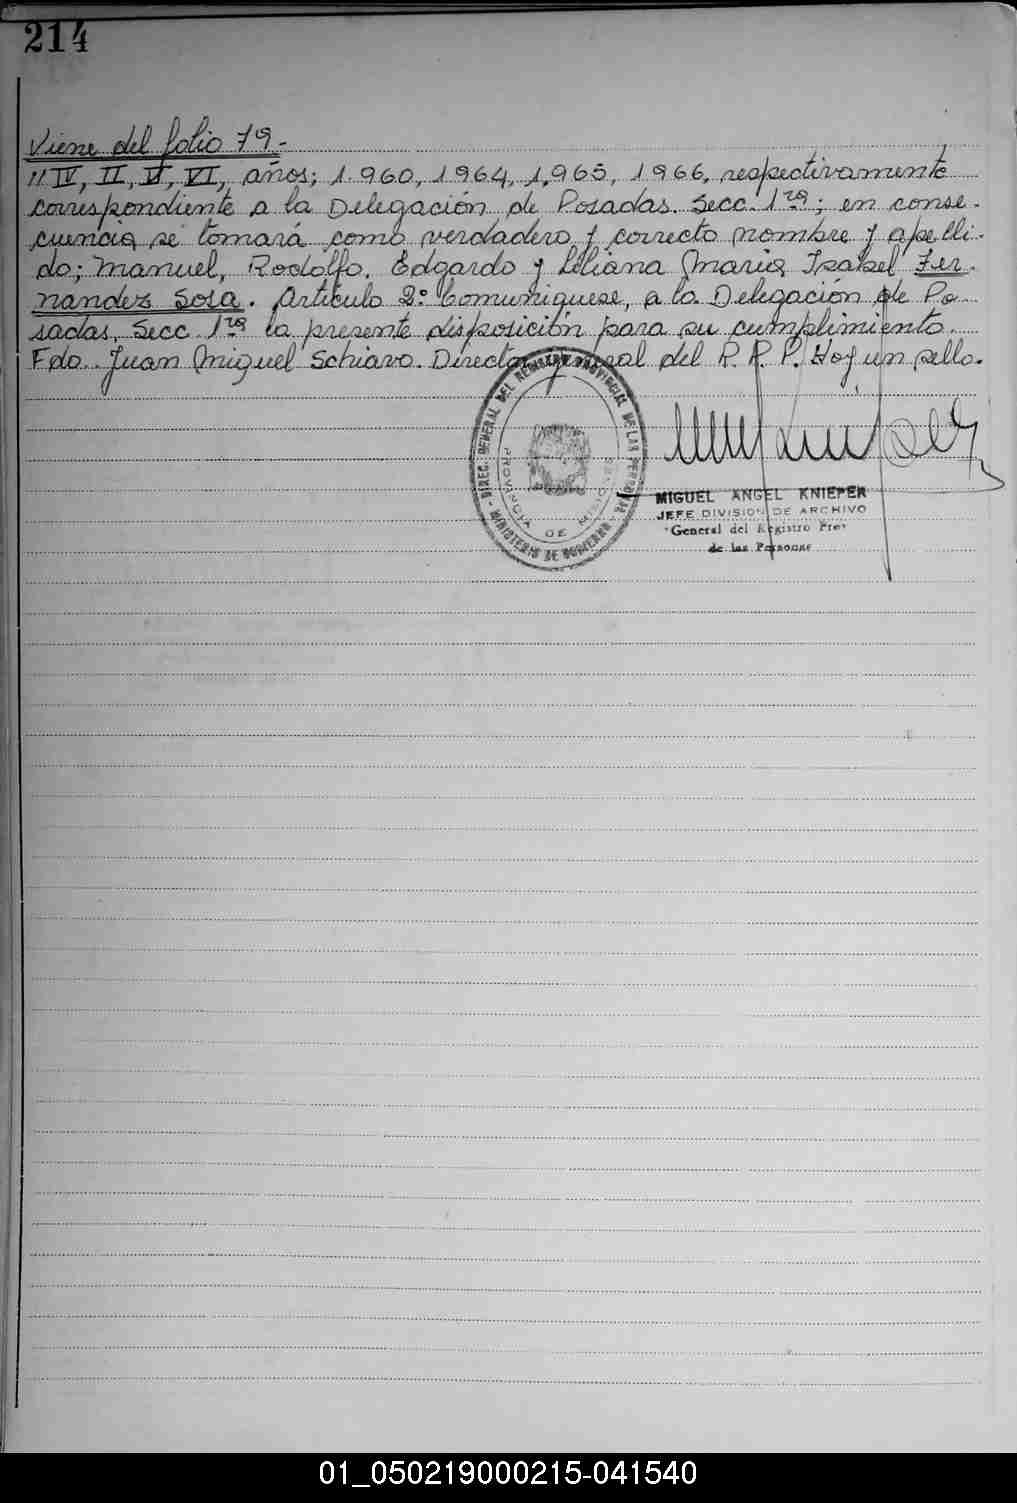 214
Viene del folio 79.-
// IV, II, V, VI, años; 1.960, 1964, 1.965, 1966, respectivamente
correspondiente a la Delegación de Posadas. Secc. 1ra; en conse-
cuencia se tomará como verdadero y correcto nombre y apelli-
do; Manuel, Rodolfo, Edgardo y Liliana Maria Isabel Fer-
nandez Sosa. Artículo 2º Comuniquese, a la Delegación de Po-
sadas, Secc 1ra la presente disposición para su cumplimiento.
Fdo. Juan Miguel Schiavo. Director general del R.R.P. Hay un sello.
DIREC. GENERAL DEL REGISTRO PROVINCIAL DE LAS PERSONAS
PROVINCIA DE MISIONES
MINISTERIO DE GOBIERNO
MIGUEL ANGEL KNIEPER
JEFE DIVISION DE ARCHIVO
General del Registro Prov
de las Personas
01_050219000215-041540